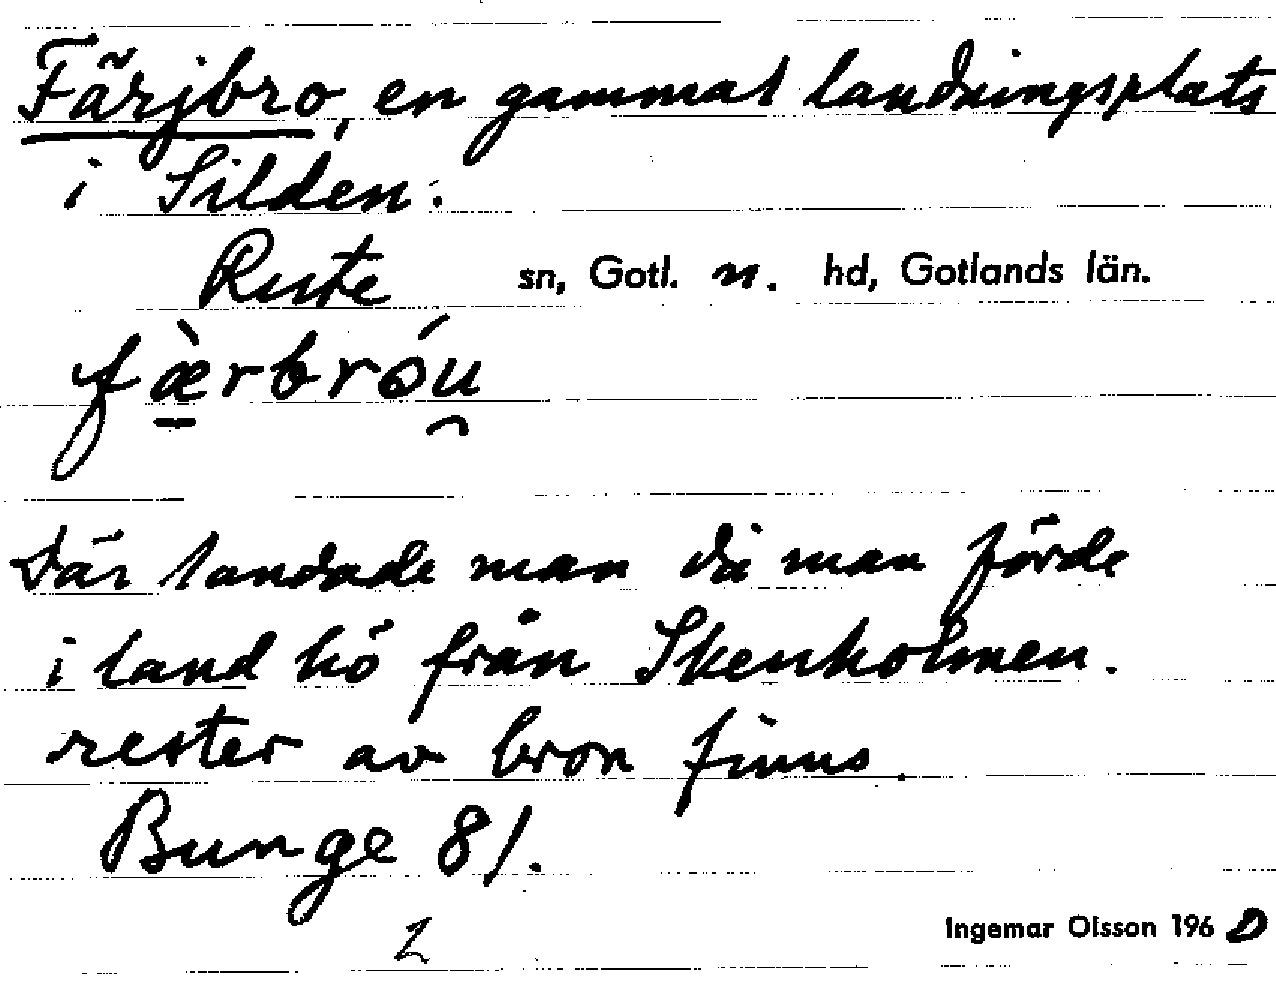 Färjbro, en gammal landningsplats
i Silden.
Rute sn, Gotl. n. hd, Gotlands län.
fæ̀rbróu̯
Där landade man då man förde
i land hö från Skenholmen.
rester av bron finns.
Bunge 81.
2
Ingemar Olsson 1960